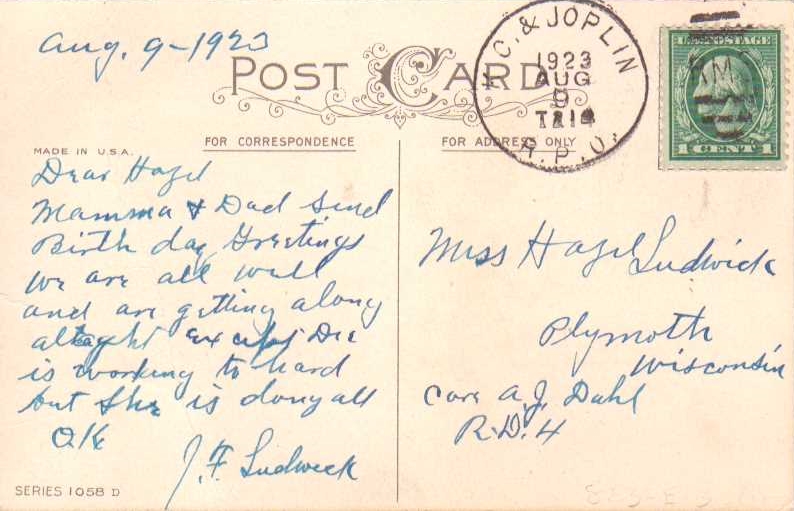 Aug. 9-1923
POST CARD
K.C. & JOPLIN
1923
AUG
9
R.P.O.
U.S. POSTAGE
RMS
1 CENT 1
FOR CORRESPONDENCE
FOR ADDRESS ONLY
MADE IN U.S.A.
Dear Hazel
Mamma & Dad send
Birth day Greetings
we are all well
and are getting along
alright except Dee
is working to hard
but she is doing all
O.K.
J. F. Ludwick
Miss Hazel Ludwick
Plymoth
Wisconsin
Care A. J. Dahl
R.D. 4
SERIES 1058 D